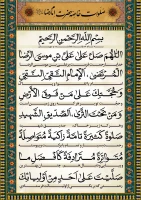 صلوات خاصه حضرت امام رضا
بسم الله الرحمن الرحیم
اللهم صل علی علی بن موسی الرضا
المرتضی الامام التقی النقی
و حجتک علی من فوق الارض
و من تحت الثری الصدیق الشهید
صلوة کثیرة تامة زاکیة متواصلة
متواترة مترادفة کافضل ما
صلیت علی احد من اولیائک